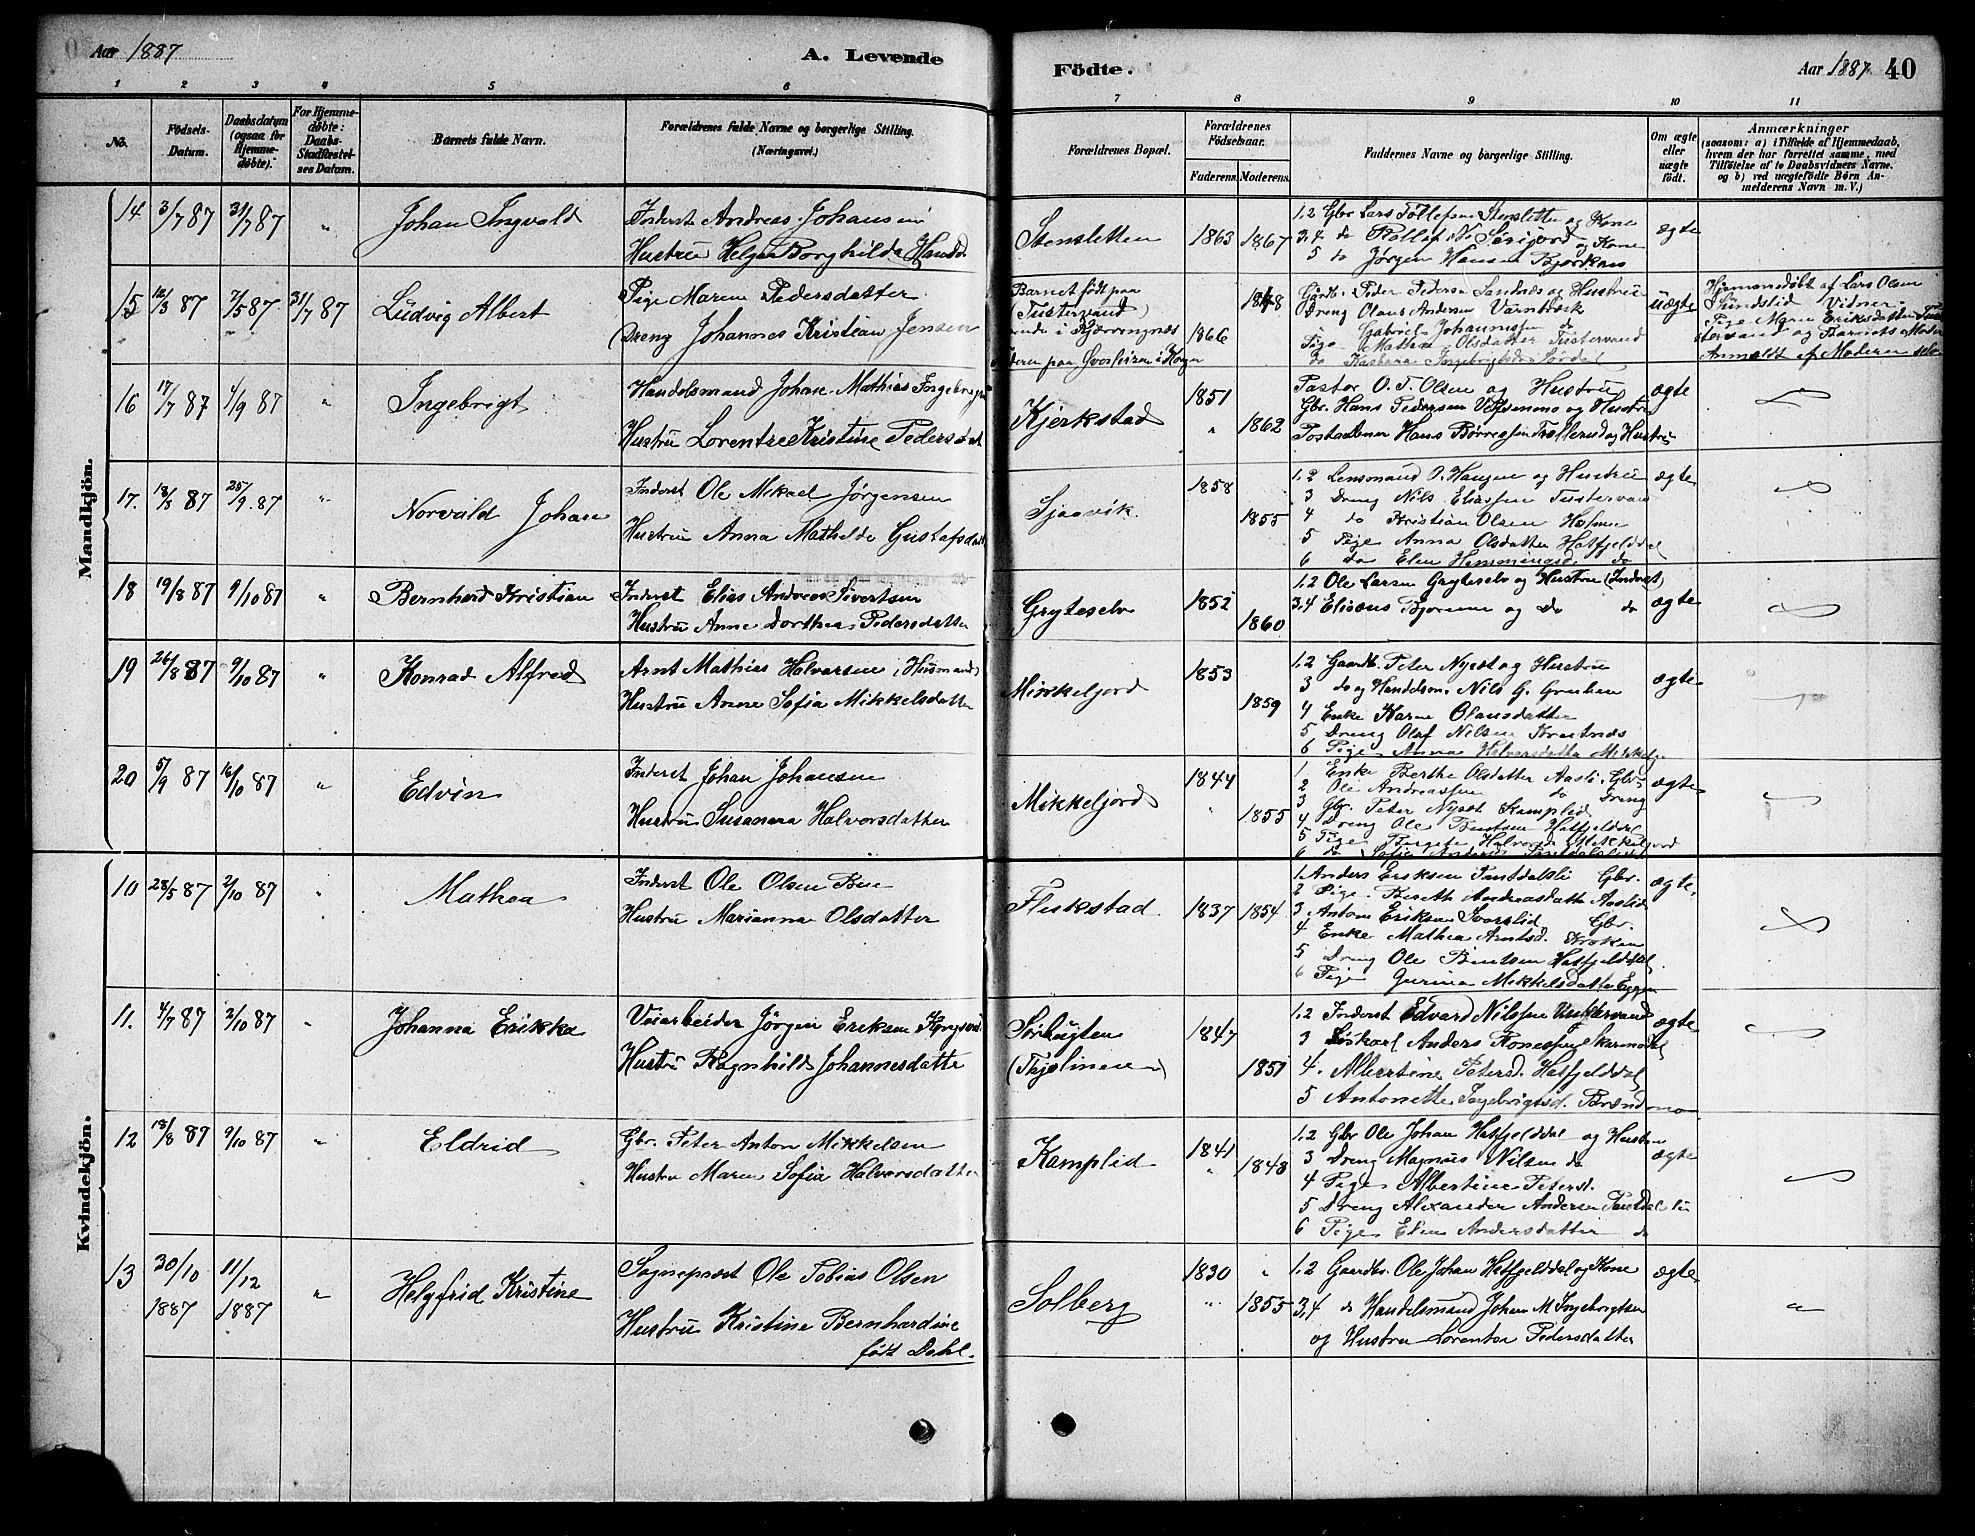 Aar 1887
A. Levende
Födte.
Aar 1887 40
1 2 3 4 5 6 7 8 9 10 11
No.
Födsels-Datum.
Daabsdatum (ogsaa for Hjemmedøbte).
For Hjemmedøbte: Daabs-Stadfæstelses Datum.
Barnets fulde Navn.
Forældrenes fulde Navne og borgerlige Stilling.
(Næringsvei.)
Forældrenes Bopæl.
Forældrenes Födselsaar.
Faderens. Moderens.
Faddernes Navne og borgerlige Stilling.
Om ægte eller uægte født.
Anmærkninger
(saasom: a) i Tilfælde af Hjemmedaab, hvem der har forrettet samme, med Tilføielse af to Daabsvidners Navne. og b) ved uægtefödte Børn Anmelderens Navn m. V.)
Mandkjön.
14 3/7 87 31/7 87 " Johan Ingvald
Inderst Andreas Johansen
Hustru Helga Borghilda Hansd.
Stensletten 1863 1867
1,2 Gbr Lars Tollefsen Stensletten og Kone
3,4 do Rollaf og Kone
5 do Jørgen Hansen Bjordkaas
ægte
15 12/3 87 7/5 87 31/7 87 Ludvig Albert
Pige Maren Pedersdatter
(Dreng Johannes Kristian Jensen
Barnet født paa
Tustervand)
i Kjærringnæs
Faderen paa i Korgen
1866 1848
Gaardb. Peder Pedersen Sandnæs og Hustru
Dreng Olaus Andersen Varntræsk
Gabriel Johannessen do
Pige Mathea Olsdatter Tustervand
uægte
Hjemmedøbt af Lars Olsen
Sundslid Vidner:
Pige Maren Eriksdatter Tustervand og Barnets Moder
Anmeldt af Moderen selv
16 17/7 87 4/9 87 " Ingebrigt
Handelsmand Johan Mathias Ingebrigtsen
Hustru Lorentze Kristine Pedersdat
Kjerkstad 1851 " 1862
Pastor O. T. Olsen og Hustru
Gbr. Hans Pedersen og Hustru
Postaabner Hans Børresen og Hustru
ægte
17. 18/8 87 25/9 87 " Norvald Johan
Inderst Ole Mikael Jørgensen
Hustru Anna Mathilde Gustafsdatt
Sjaavik. 1858 1855
1,2 Lensmand O. Haugen og Hustru
3 Dreng Nils Eliassen Tustervand
4 do Kristian Olsen Holmen
5 Pige Anna Olsdatter Hatfjelddal
6 do Elen Hemmingsd. do
ægte
18 19/8 87 9/10 87 " Bernhard Kristian
Inderst Elias Andreas Sivertsen
Hustru Anne Dorthea Pedersdatter
Gryteselv 1852 1860
1,2 Ole Larsen Gryteselv og Hustru (Inderst)
3,4 Elisæus Bjornson og Do do
ægte
19 26/8 87 9/10 87 " Konrad Alfred
Arnt Mathias Halvorsen (Husmand)
Hustru Anne Sofia Mikkelsdatter
Mikkeljord 1853 1859
1,2 Gaardb. Peter Nyset og Hustru
3 do og Handelsm. Nils G. Gruben
4 Enke Karen Olausdatter
5 Dreng Olaf Nilsen Krutnæs
6 Pige Anna Halvorsdatter Mikkelj.
ægte
20 5/9 87 16/10 87 " Edvin
Inderst Johan Johansen
Hustru Susanna Halvorsdatter
Mikkeljord 1844 " 1855
1 Enke Berthe Olsdatter Aasli. Gbr.
2 Ole Andreassen do Dreng
3 Gbr. Peter Nyset Kamplid
4 Dreng Ole Bentsen Hatfjelddal
5 Pige Birgite Halvorsd. Mikkeljord
ægte
Kvindekjön.
10 28/5 87 2/10 87 " Mathea
Inderst Ole Olsen Bue
Hustru Marianna Olsdatter
Fluskstad 1837 1854
1 Anders Eriksen Pantdalsli Gbr.
2 Pige Bereth Andreasdatter Aaslid
3 Anton Eriksen Gbr.
4 Enke Mathea Arntsd. Kroken
5 Dreng Ole Bentsen Hatfjelddal.
6 Pige Gurina Mikkelsdatter Eggen
ægte.
11. 4/7 87 2/10 87 " Johanna Erikka
Veiarbeider Jørgen Eriksen
Hustru Ragnhild Johannesdatter
Sørbugten
1847 1851
1,2 Inderst Edvard Nilssen og Hustru
3 Löskarl Anders Skarmodal
4. Albertine Petersd. Hatfjelddal
5 Antonette Ingebrigtsd. Brændmo
ægte
12 18/8 87 9/10 87 " Eldrid
Gbr. Peter Anton Mikkelsen
Hustru Maren Sofia Halvorsdatter
Kamplid 1841 " 1848
1,2 Gbr Ole Johan Hatfjelddal og Hustru
3 Dreng Magnus Nilsen do
4 Pige Albertine Petersd.
5 Dreng Alexander Andersen Pantdalsli
6 Pige Elen Andersdatter do
ægte
13 30/10 1887 11/12 1887 " Helgfrid Kristine
Sogneprest Ole Tobias Olsen
Hustru Kristine Bernhardine
født Dahl.
Solberg 1830 " " 1855
1,2 Gaardbr. Ole Johan Hatfjelddal og Kone
3,4 do Handelsmand Johan M. Ingebrigtsen
og Hustru Lorentse Pedersdatter
ægte "